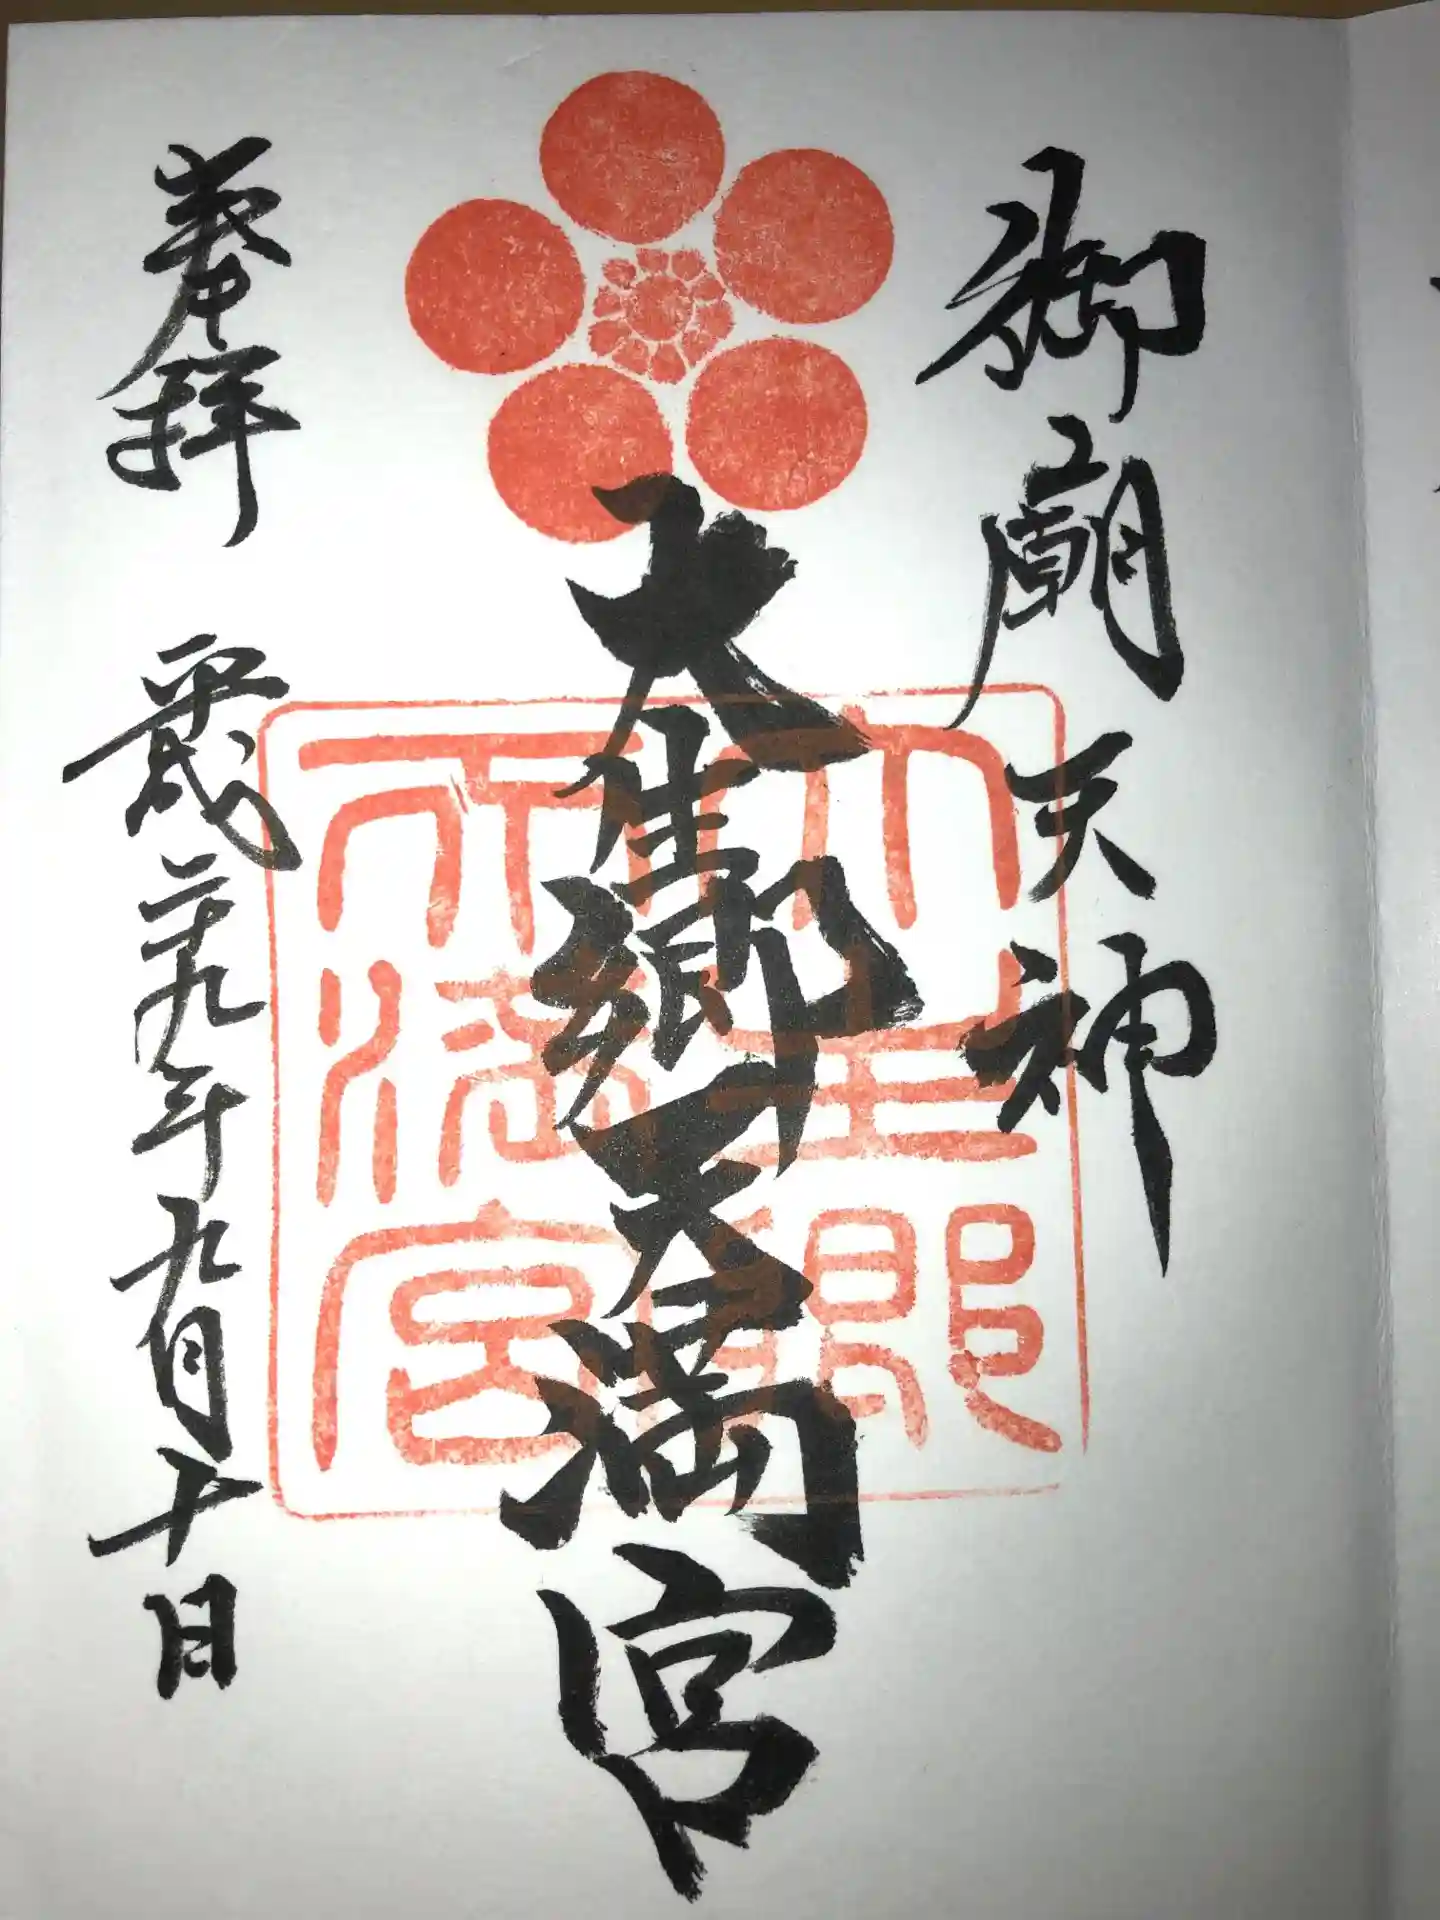 御廟天神
大生郷天満宮
奉拝 平成二十九年九月十日
大生郷
天満宮